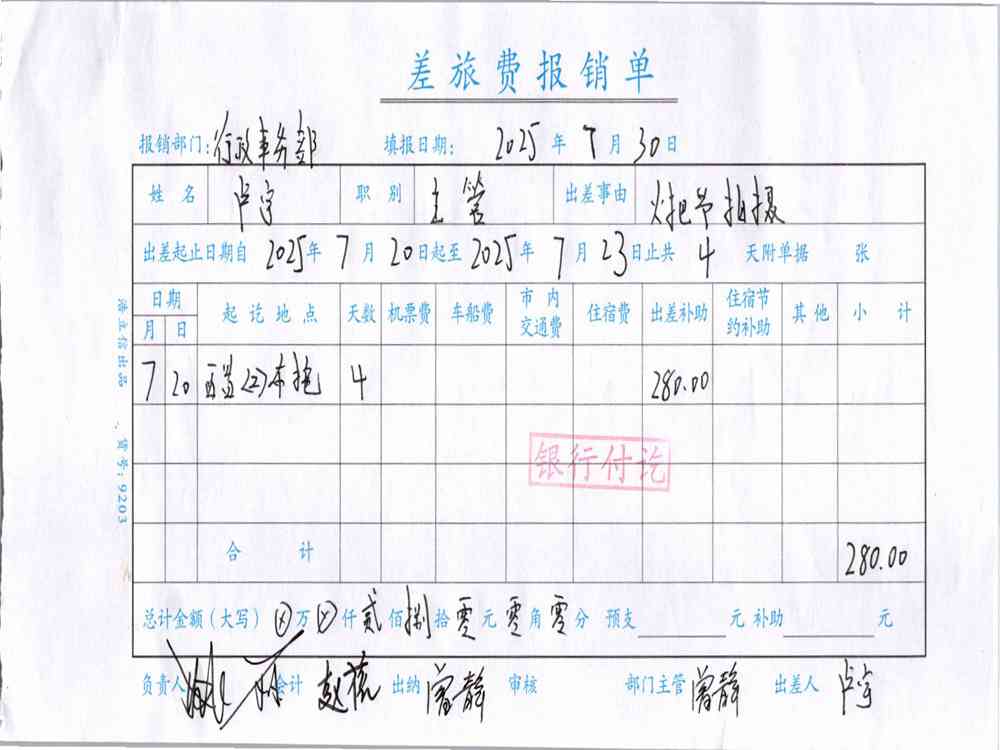 差旅费报销单
报销部门:行政事务部 填报日期: 2025 年 7 月 30 日
姓名 卢宇 职别 主管 出差事由 火把节拍摄
出差起止日期自 2025 年 7 月 20 日起至 2025 年 7 月 23 日止共 4 天附单据 张
日期 起讫地点 天数 机票费 车船费 市内交通费 住宿费 出差补助 住宿节约补助 其他 小计
月 日
7 20 4 280.00
银行付讫
合计 280.00
总计金额(大写) ⊗万 ⊗仟 贰佰 捌拾 零元 零角 零分 预支 元 补助 元
负责人 会计 出纳 曾静 审核 部门主管 曾静 出差人 卢宇
浩立信出品 、货号:9203